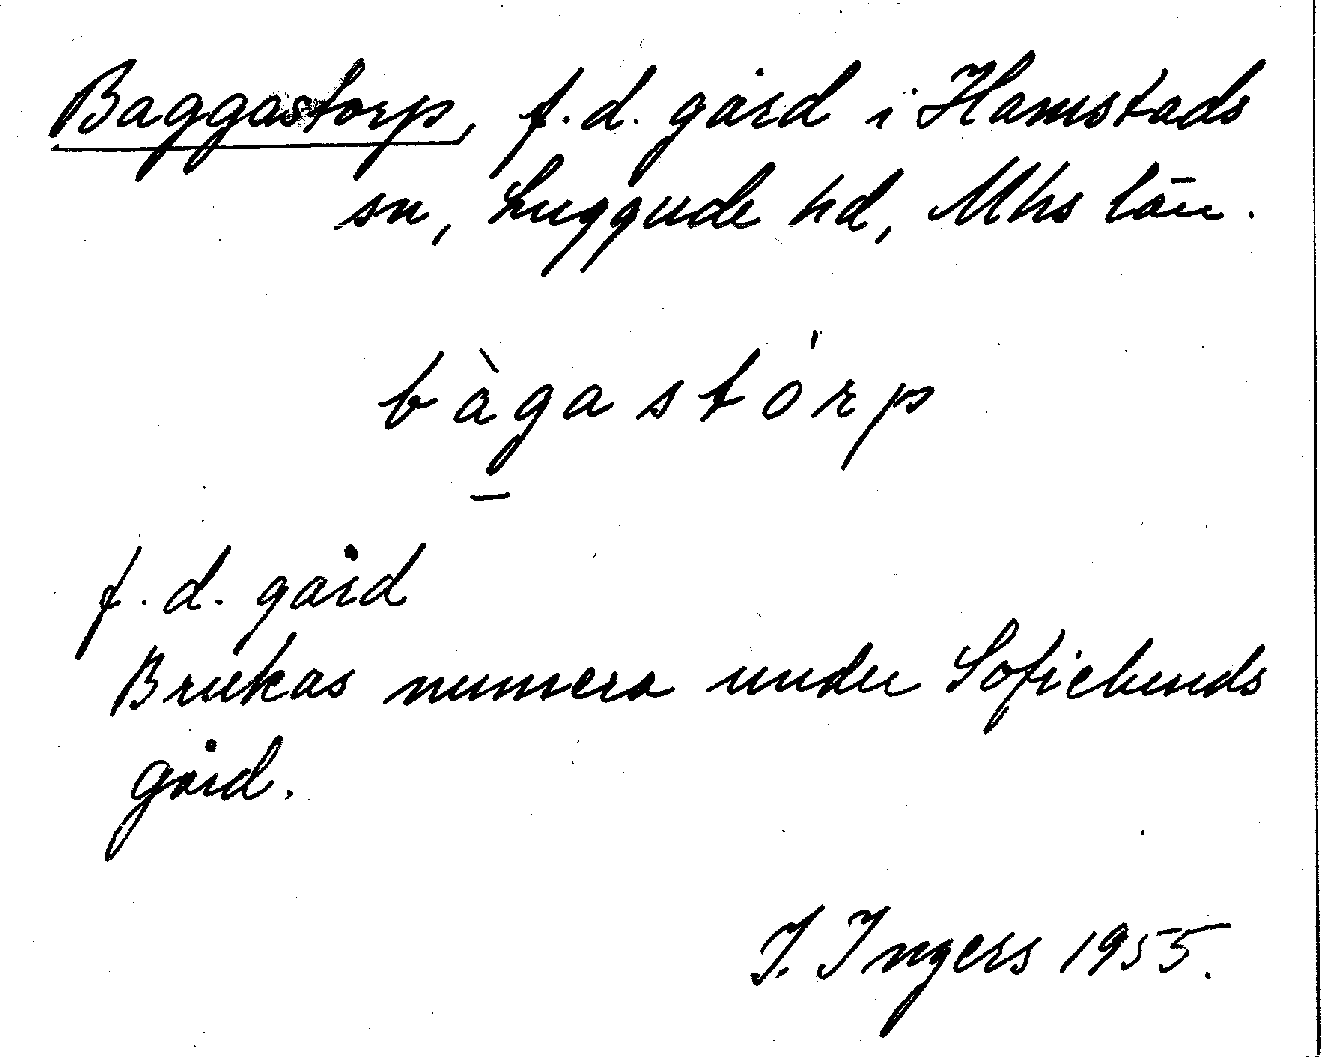 Baggastorp, f.d. gård i Hamstads
sn, Luggude hd, Mhs län.
bàgastórp
f.d. gård
Brukas numera under Sofielunds
gård.
I. Ingers 1955.